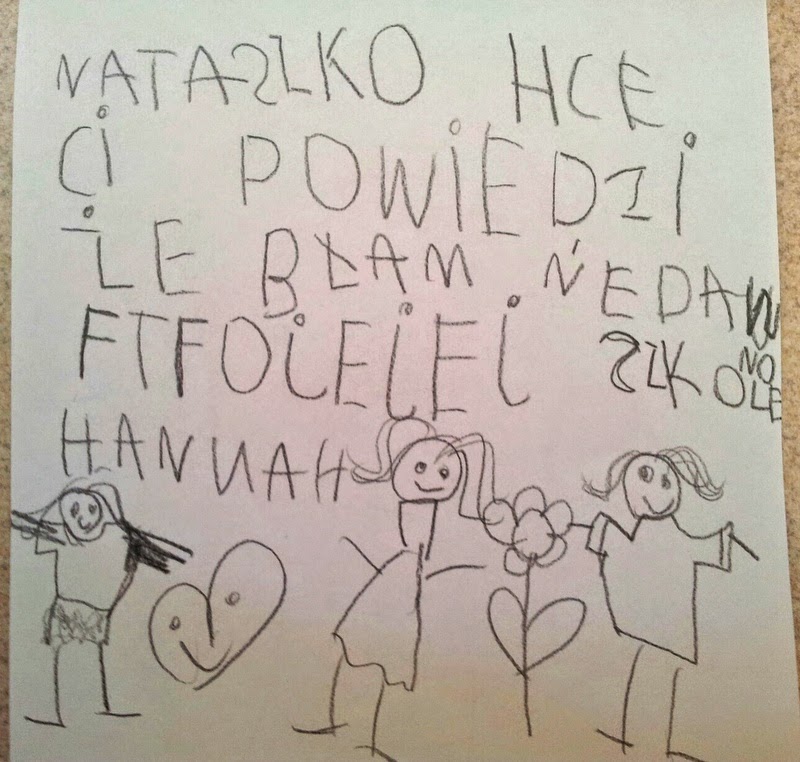 NATASZKO HCE
Ci POWiEDZi
ŻE BŁAM ŃEDAW
NO
FTFOiEiEi SZKOLE
HANNAH